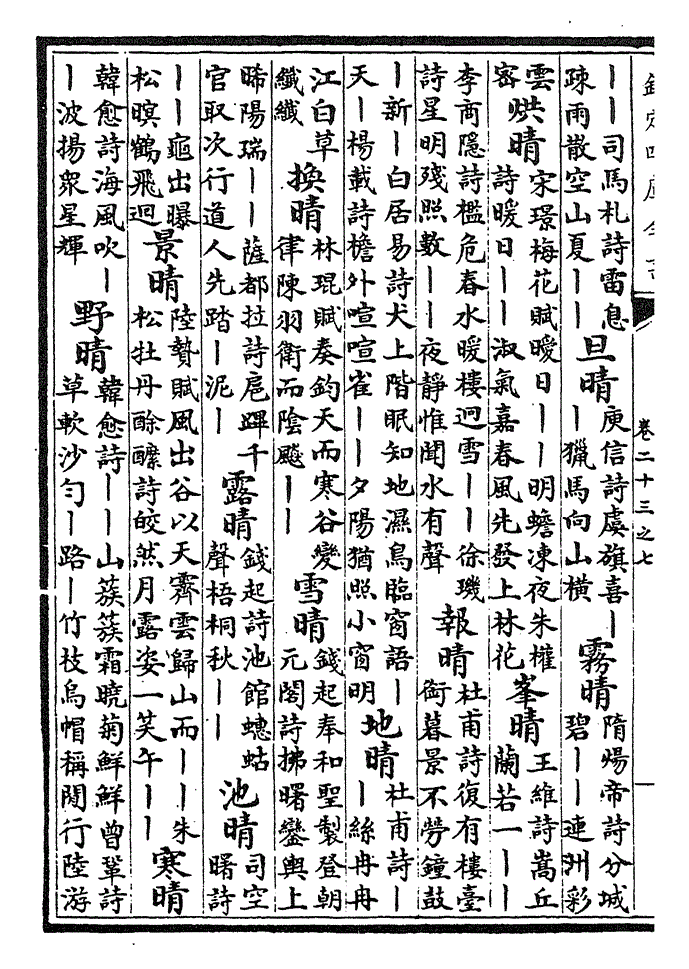 欽定四庫全書
卷二十三之七
丨丨司馬札詩雷息疎雨散空山夏丨丨旦晴庾信詩虞旗喜丨丨獵馬向山橫霧晴隋煬帝詩分城碧丨丨連洲彩
雲密烘晴宋璟梅花賦曖日丨丨明蟾凍夜朱權詩暖日丨丨淑氣嘉春風先發上林花峯晴王維詩嵩丘蘭若一丨丨丨
李商隱詩檻危春水暖樓迴雪丨丨徐璣詩星明殘照數丨丨夜靜惟聞水有聲報晴杜甫詩復有樓臺銜暮景不勞鐘鼓
丨新丨白居易詩犬上階眠知地濕鳥臨窗語丨天丨楊載詩檐外喧喧雀丨丨夕陽猶照小窗明地晴杜甫詩丨丨絲冉冉
江白草纖纖換晴林琨賦奏鈞天而寒谷變律陳羽衛而陰飈丨丨雪晴錢起奉和聖製登朝元閣詩拂曙鑾輿上
晞陽瑞丨丨薩都拉詩扈蹕千官取次行道人先踏丨泥丨露晴錢起詩池館蟪蛄聲梧桐秋丨丨池晴司空曙詩
丨丨龜出曝松暝鶴飛迴景晴陸贄賦風出谷以天霽雲歸山而丨丨朱松牡丹酴醾詩皎然月露姿一笑午丨丨寒晴
韓愈詩海風吹丨丨波揚衆星輝野晴韓愈詩丨丨山蔟蔟霜曉菊鮮鮮曾鞏詩草軟沙勻丨路丨竹枝烏帽稱閒行陸游